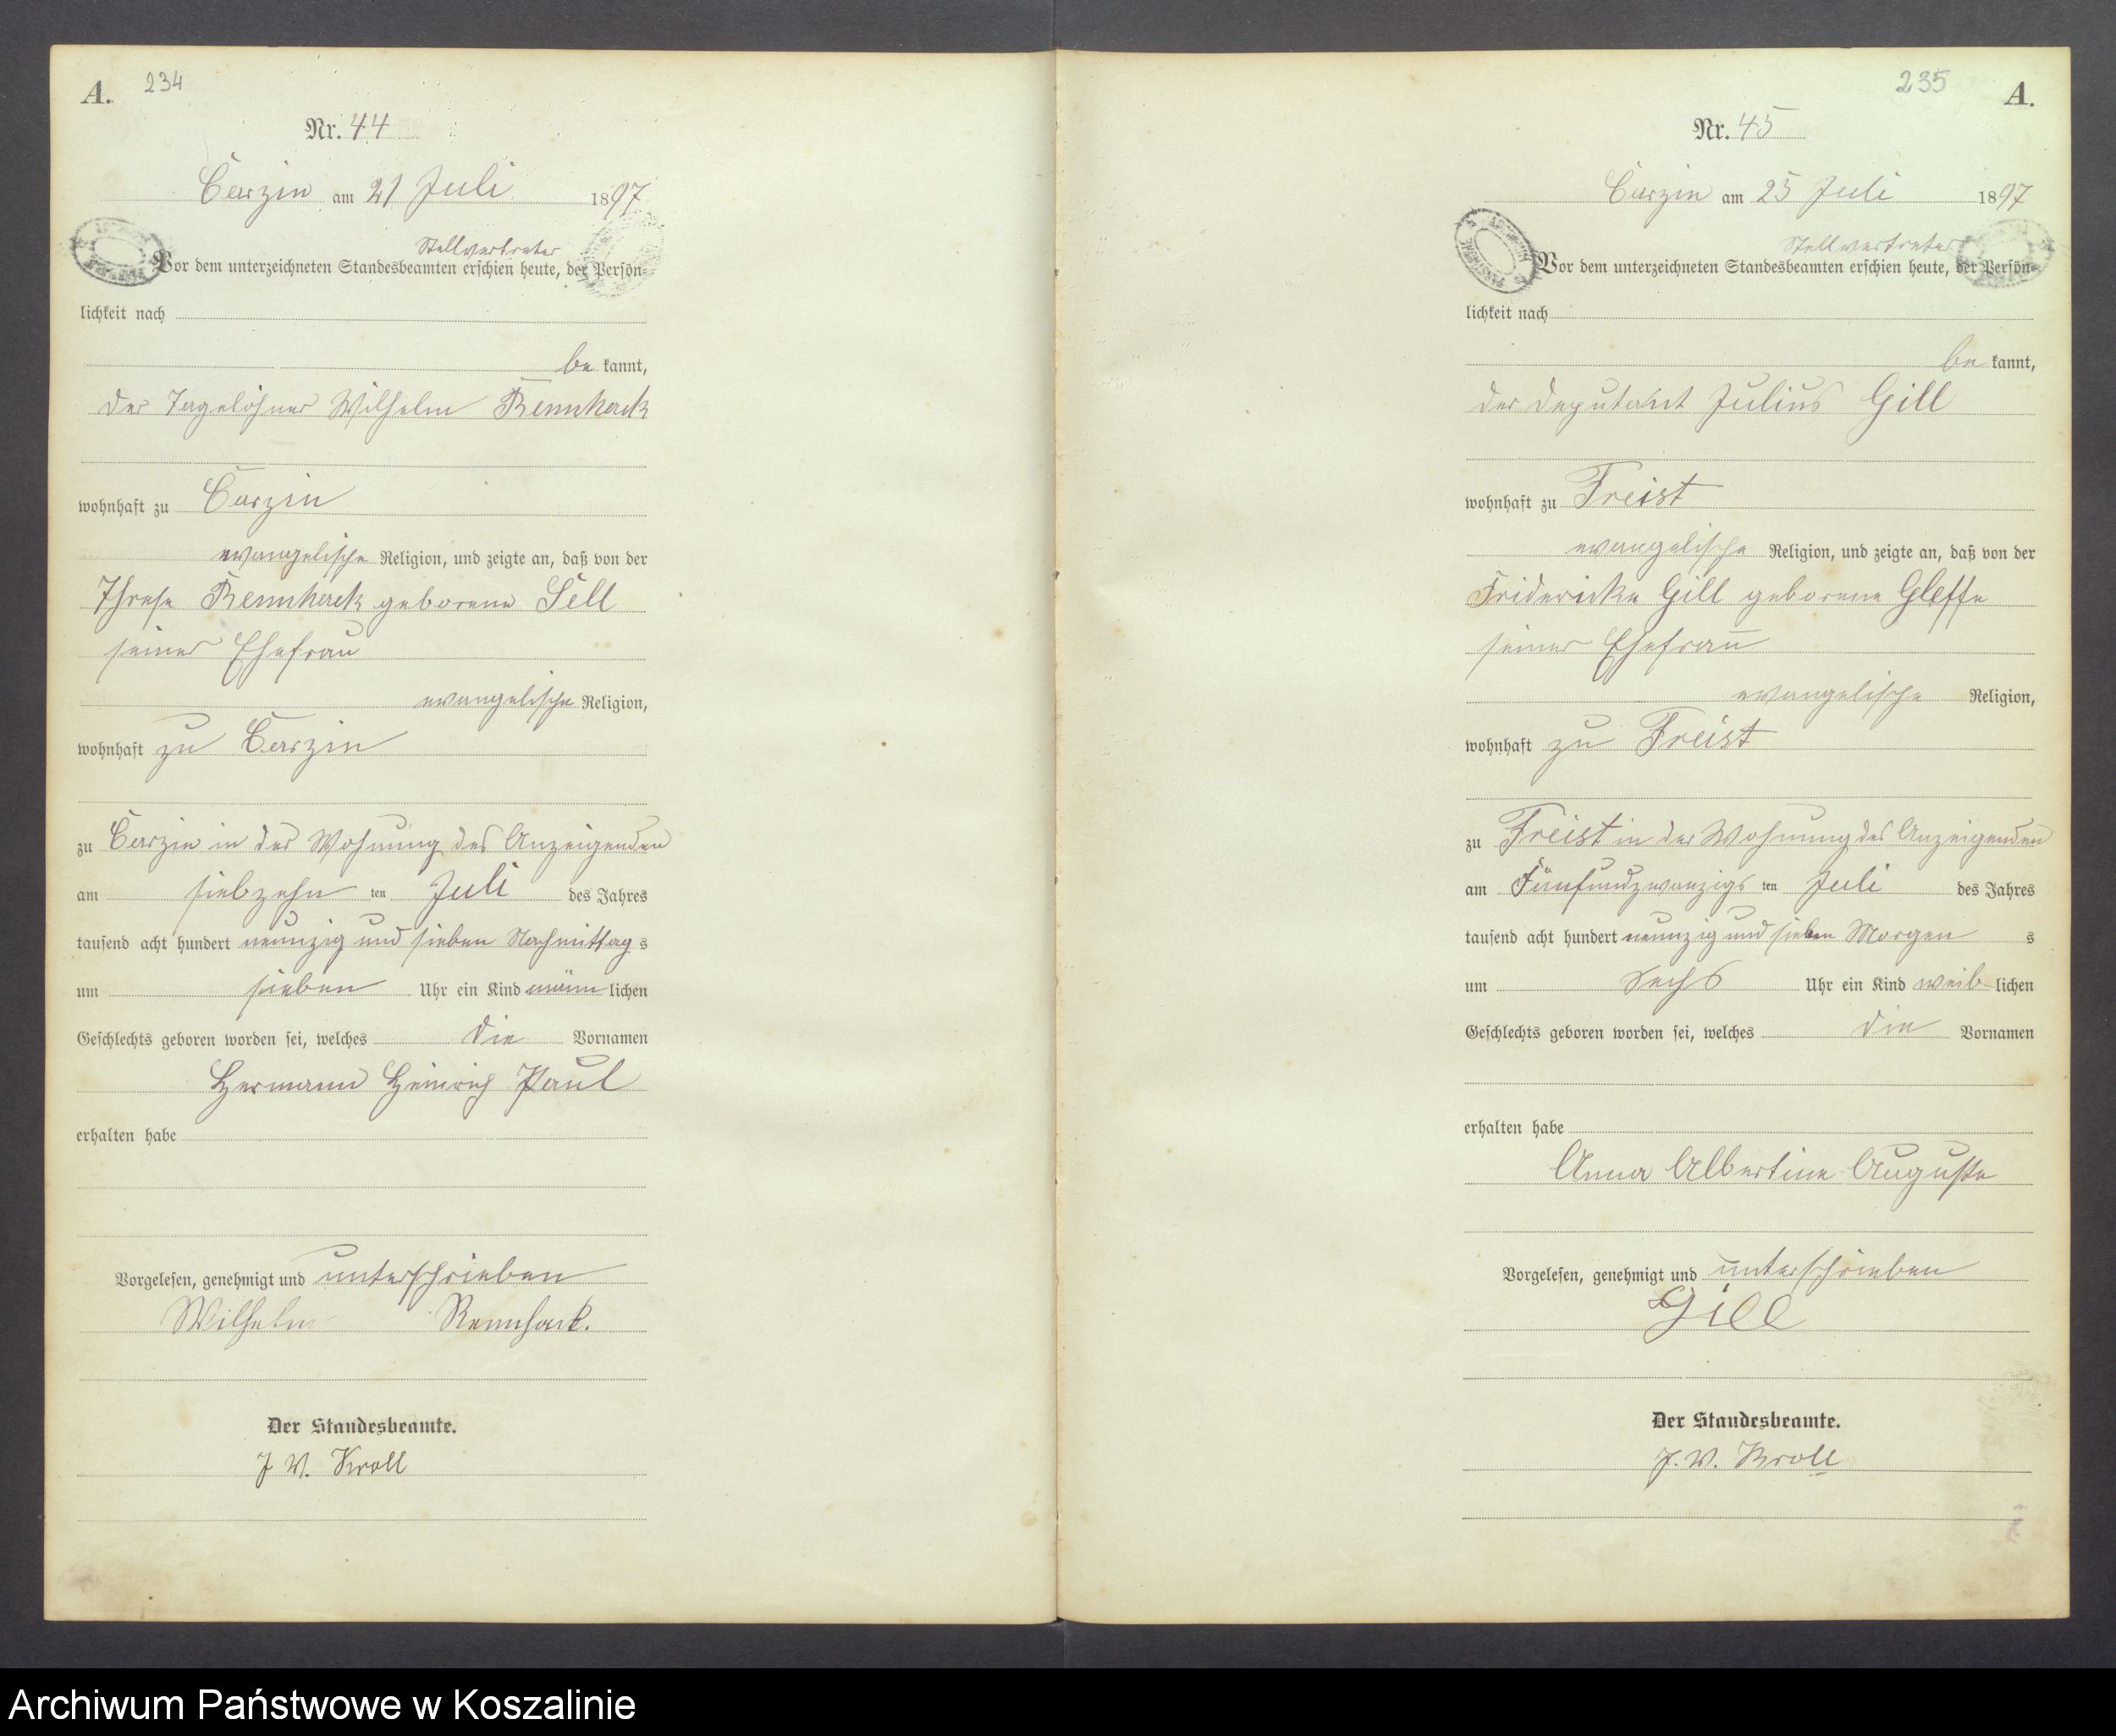 A. 234
Nr. 44
Carzin am 21 Juli 1897
Stellvertreter
Vor dem unterzeichneten Standesbeamten erschien heute, der Persön-
lichkeit nach
be kannt,
der Tagelöhner Wilhelm Rennhack
wohnhaft zu Carzin
evangelische Religion, und zeigte an, daß von der
Threse Rennhack geborene Sell
seiner Ehefrau
evangelische Religion,
wohnhaft zu Carzin
zu Carzin in der Wohnung des Anzeigenden
am siebzehn ten Juli des Jahres
tausend acht hundert neunzig und sieben Nachmittag s
um sieben Uhr ein Kind männ lichen
Geschlechts geboren worden sei, welches die Vornamen
Hermann Heinrich Paul
erhalten habe
Vorgelesen, genehmigt und unterschrieben
Wilhelm Rennhack.
Der Standesbeamte.
J. V. Kroll
235 A.
Nr. 45
Carzin am 25 Juli 1897
Stellvertreter
Vor dem unterzeichneten Standesbeamten erschien heute, der Persön-
lichkeit nach
be kannt,
der Deputant Julius Gill
wohnhaft zu Freist
evangelische Religion, und zeigte an, daß von der
Fridericke Gill geborene Gleffe
seiner Ehefrau
evangelische Religion,
wohnhaft zu Freist
zu Freist in der Wohnung des Anzeigenden
am Fünfundzwanzigs ten Juli des Jahres
tausend acht hundert neunzig und sieben Morgen s
um Sechs Uhr ein Kind weib lichen
Geschlechts geboren worden sei, welches die Vornamen
erhalten habe
Anna Albertine Auguste
Vorgelesen, genehmigt und unterschrieben
Gill
Der Standesbeamte.
J. V. Kroll
Archiwum Państwowe w Koszalinie